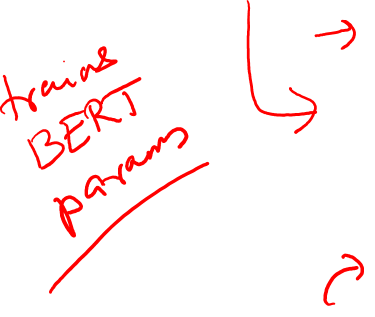 trains
BERT
params